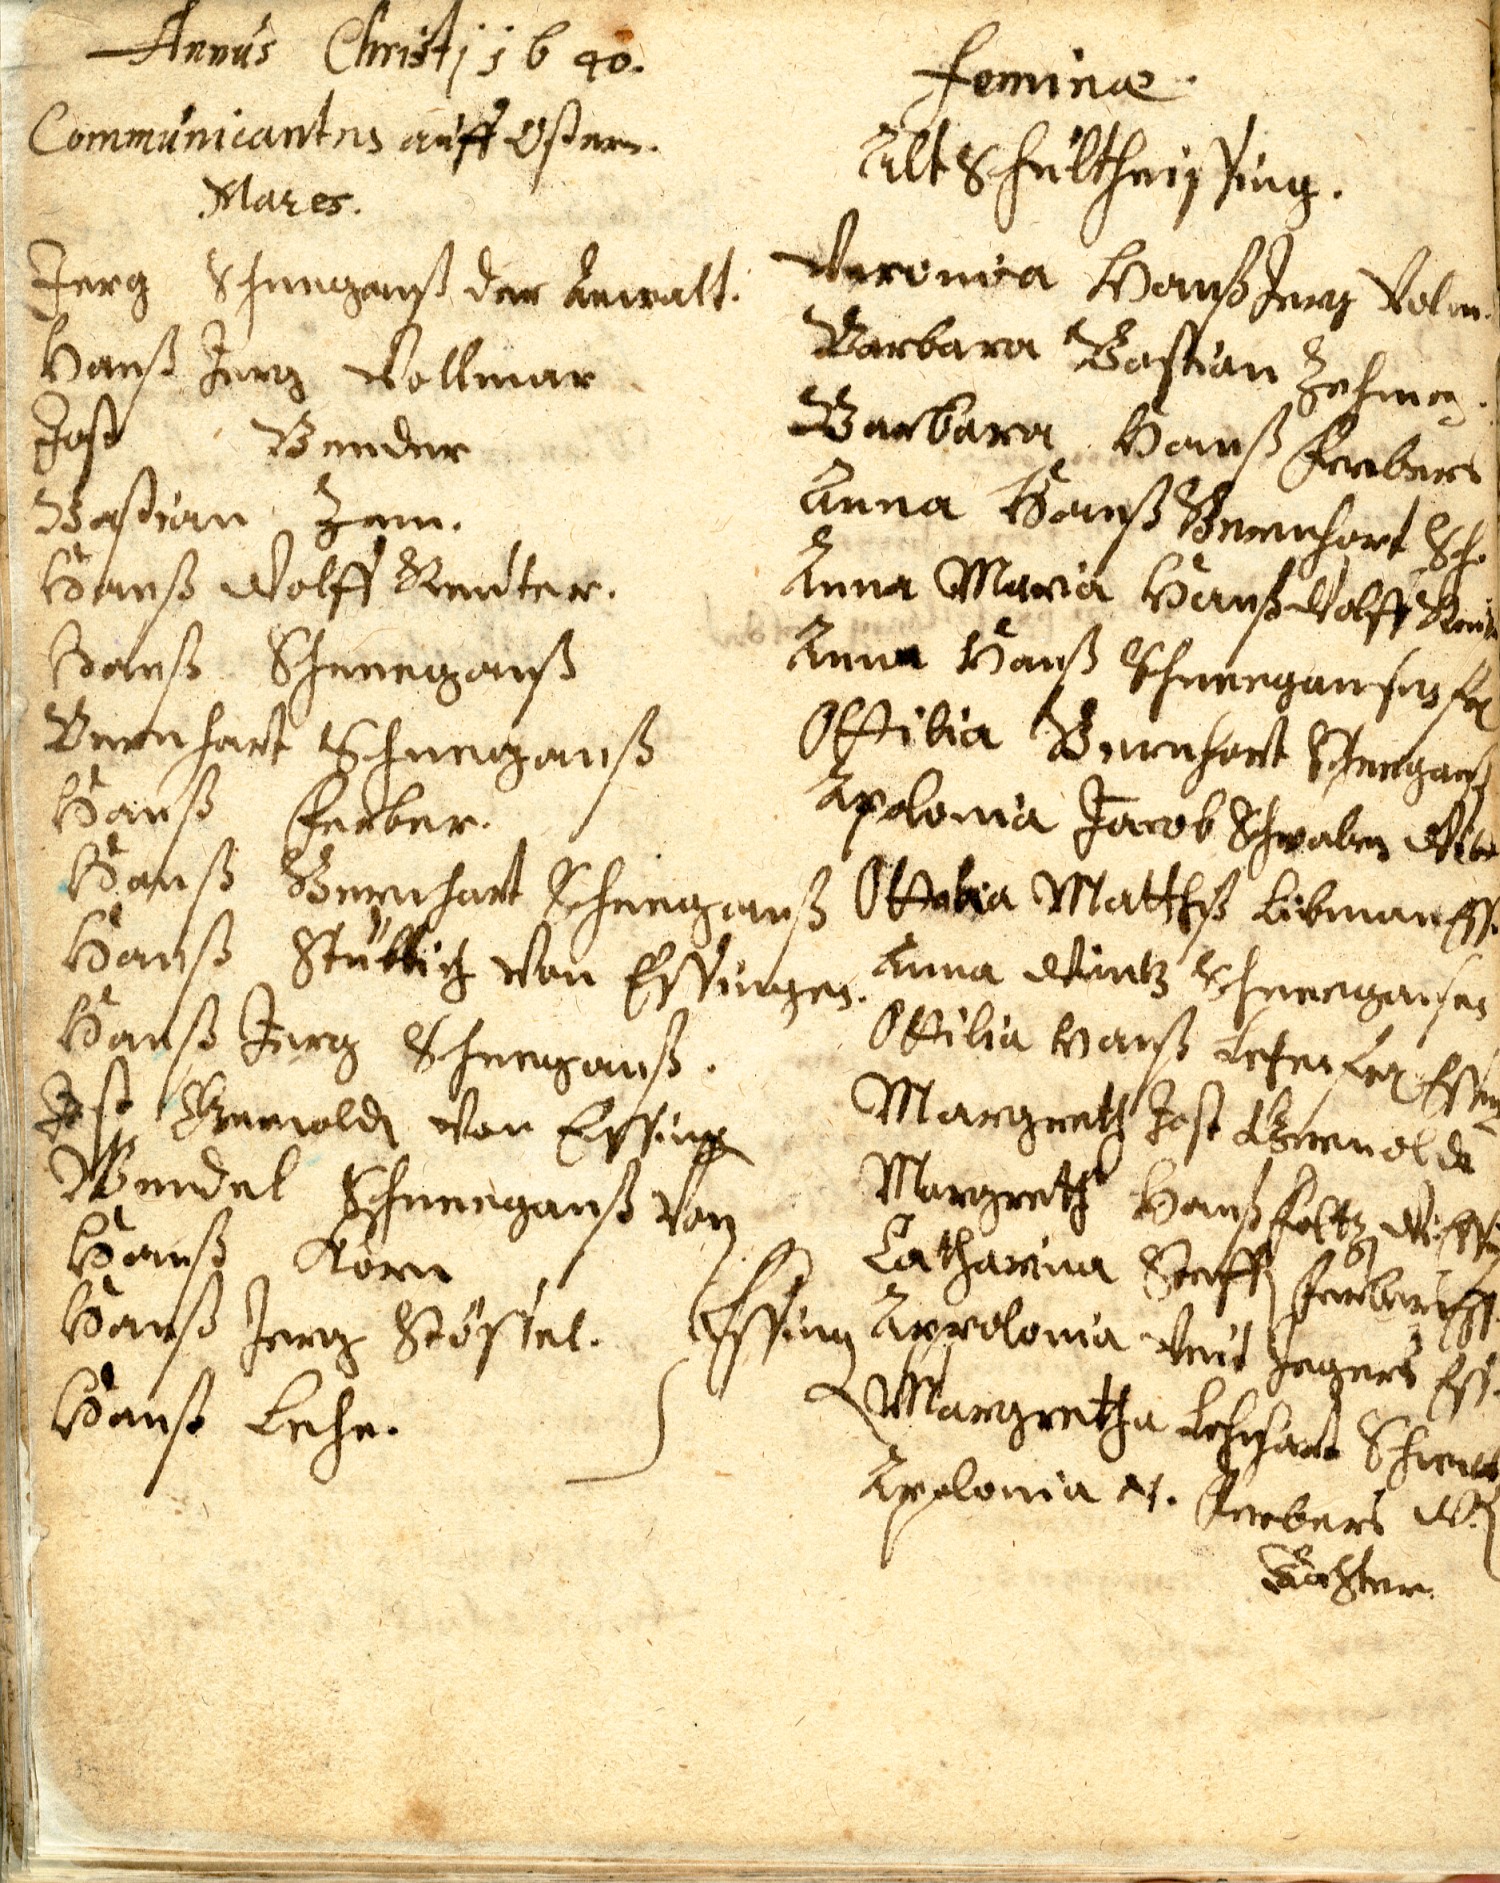 Annus Christj 1640.
Communicantes auff Ostern.
Mares.
Jerg Schneeganß der Anwalt.
Hanß Jerg Vollmar
Jost Bender
Bastian Zem.
Hanß Wolff Reuter.
Hanß Schneeganß
Bernhart Schneeganß
Hanß Ferber.
Hanß Bernhart Schneeganß
Hanß Stüblich von Essingen.
Hanß Jerg Schneeganß.
Jost von Essing
Wendel Schneeganß von
Hanß Korn
Hanß Jerg Stössel. Essing
Hanß Lehe.
Feminae.
Alt Schultheissing.
Veronica Hanß Jerg Volm.
Barbara Bastian Zehmen.
Barbara Hanß Ferbers
Anna Hanß Bernhart Sch
Anna Maria Hanß Wolff Reut
Anna Hanß Schneegansen
Ottilia Bernhart Schneeganß
Apolonia Jacob Schwaben Witw
Ottilia Mattheß Libman Ess.
Anna Wintz Schneegansen
Ottilia Hanß Essing
Margreth Jost
Margreth Hanß Foltz
Catharina Steff Ferbers Ess.
Appolonia Veit Jegers Ess.
Margretha Lehnhart
Apolonia N. Ferbers W.
Dochter.